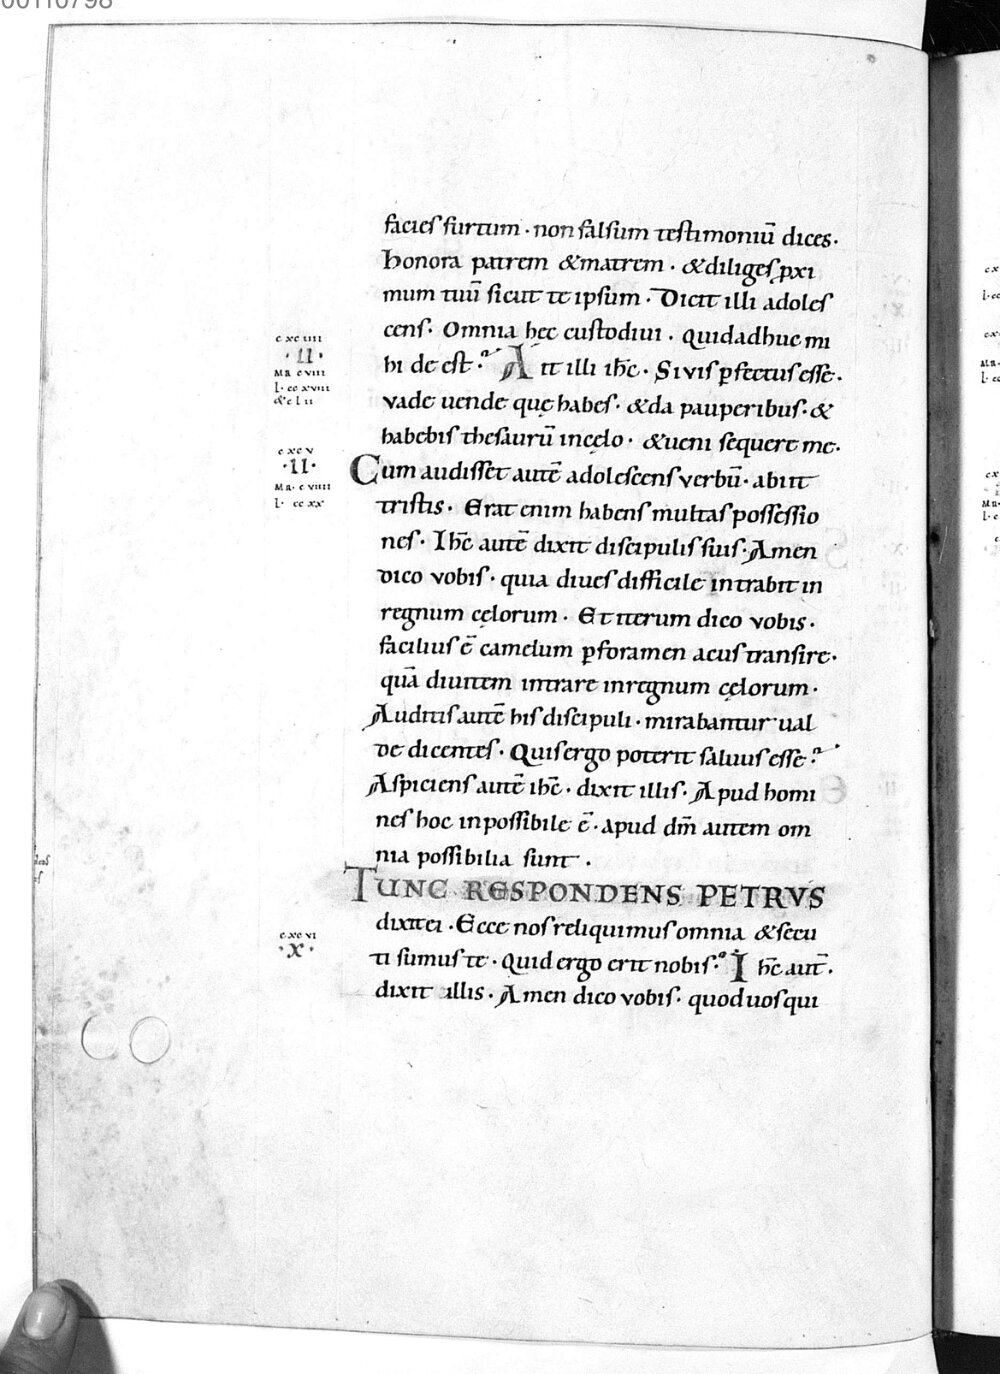 00110798
facies furtum · non falsum testimoniū dices ·
honora patrem & matrem · & diliges ꝓxi
mum tuū sicut te ipsum · Dicit illi adoles
cens · Omnia hęc custodiui · Quid adhuc mi
hi de est? Ait illi ihc̄ · Si vis ꝑfectus esse ·
vade uende quę habes · & da pauperibus · &
habebis thesaurū in cęlo · & ueni sequere me ·
Cum audisset autē adolescens verbū · abiit
tristis · Erat enim habens multas possessio
nes · Ihc̄ autē dixit discipulis suis · Amen
dico vobis · quia diues difficile intrabit in
regnum cęlorum · Et iterum dico vobis ·
facilius ē camelum ꝑ foramen acus transire ·
quā diuitem intrare in regnum cęlorum ·
Auditis autē his discipuli · mirabantur ual
de dicentes · Quis ergo poterit saluus esse?
Aspiciens autē ihc̄ · dixit illis · Apud homi
nes hoc inpossibile ē · apud dm̄ autem om
nia possibilia sunt ·
TUNC RESPONDENS PETRVS
dixit ei · Ecce nos reliquimus omnia & secu
ti sumus te · Quid ergo erit nobis? Ihc̄ aut̄ ·
dixit illis · Amen dico vobis · quod uos qui
c xc iiii
· II ·
Ma c viii
l · cc xviii
& c l ii
c xc v
· II ·
Ma · c viiii
l · cc xx
c xc vi
· X ·